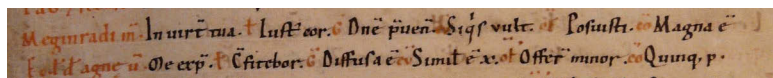 Meginradi m̄. In virt̄ tua. t Iust̄ cor. G Dn̄e p̄uen̄. Siq̄s vult. ot Posuisti. co Magna ē
Me exp̄. t C̄fitebor. G Diffusa ē co Simil̄ ē x. ot Offer̄ minor. co Quinq, p.